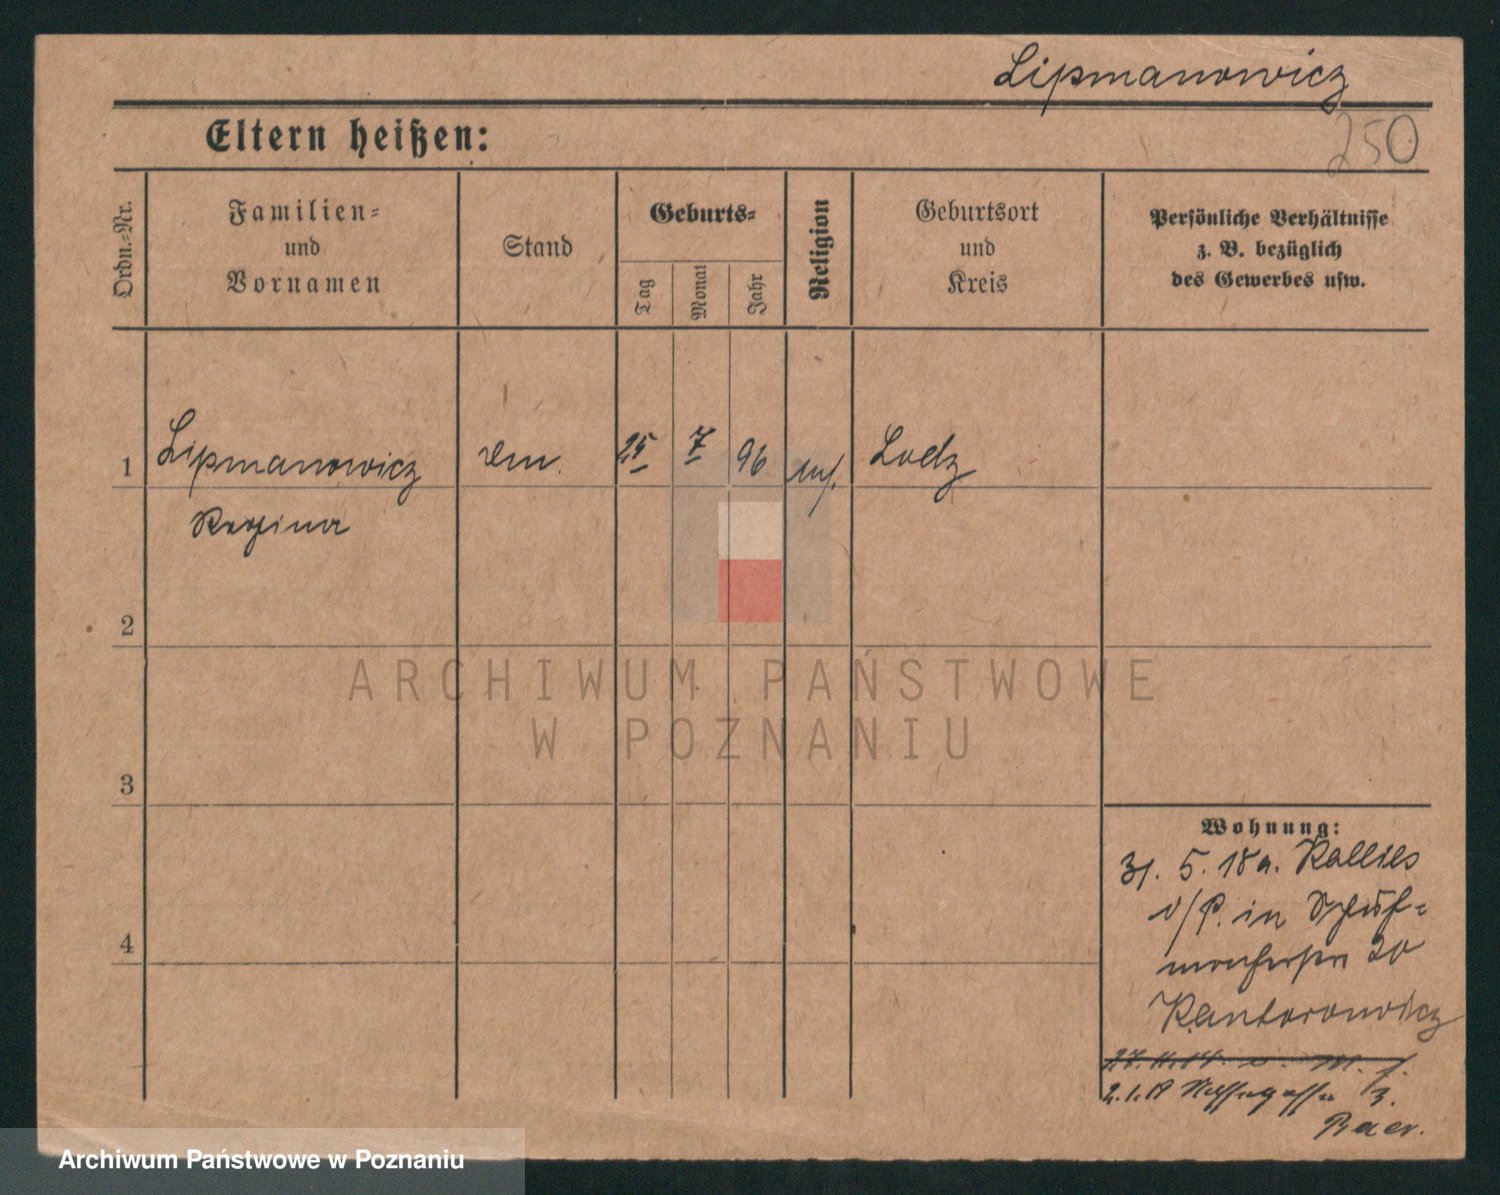 Lipmanowicz
250
Eltern heißen:
Ordn.-Nr.
Familien-
und
Vornamen
Stand
Geburts-
Tag
Monat
Jahr
Religion
Geburtsort
und
Kreis
Persönliche Verhältnisse
z. B. bezüglich
des Gewerbes usw.
1
Lipmanowicz
25
7
96
Lodz
Regina
2
3
4
ARCHIWUM PAŃSTWOWE
W POZNANIU
Wohnung:
31. 5. 18 a. Kallies
v/P. in
20
Kantorowicz
2.1.19
3.
Baer.
Archiwum Państwowe w Poznaniu